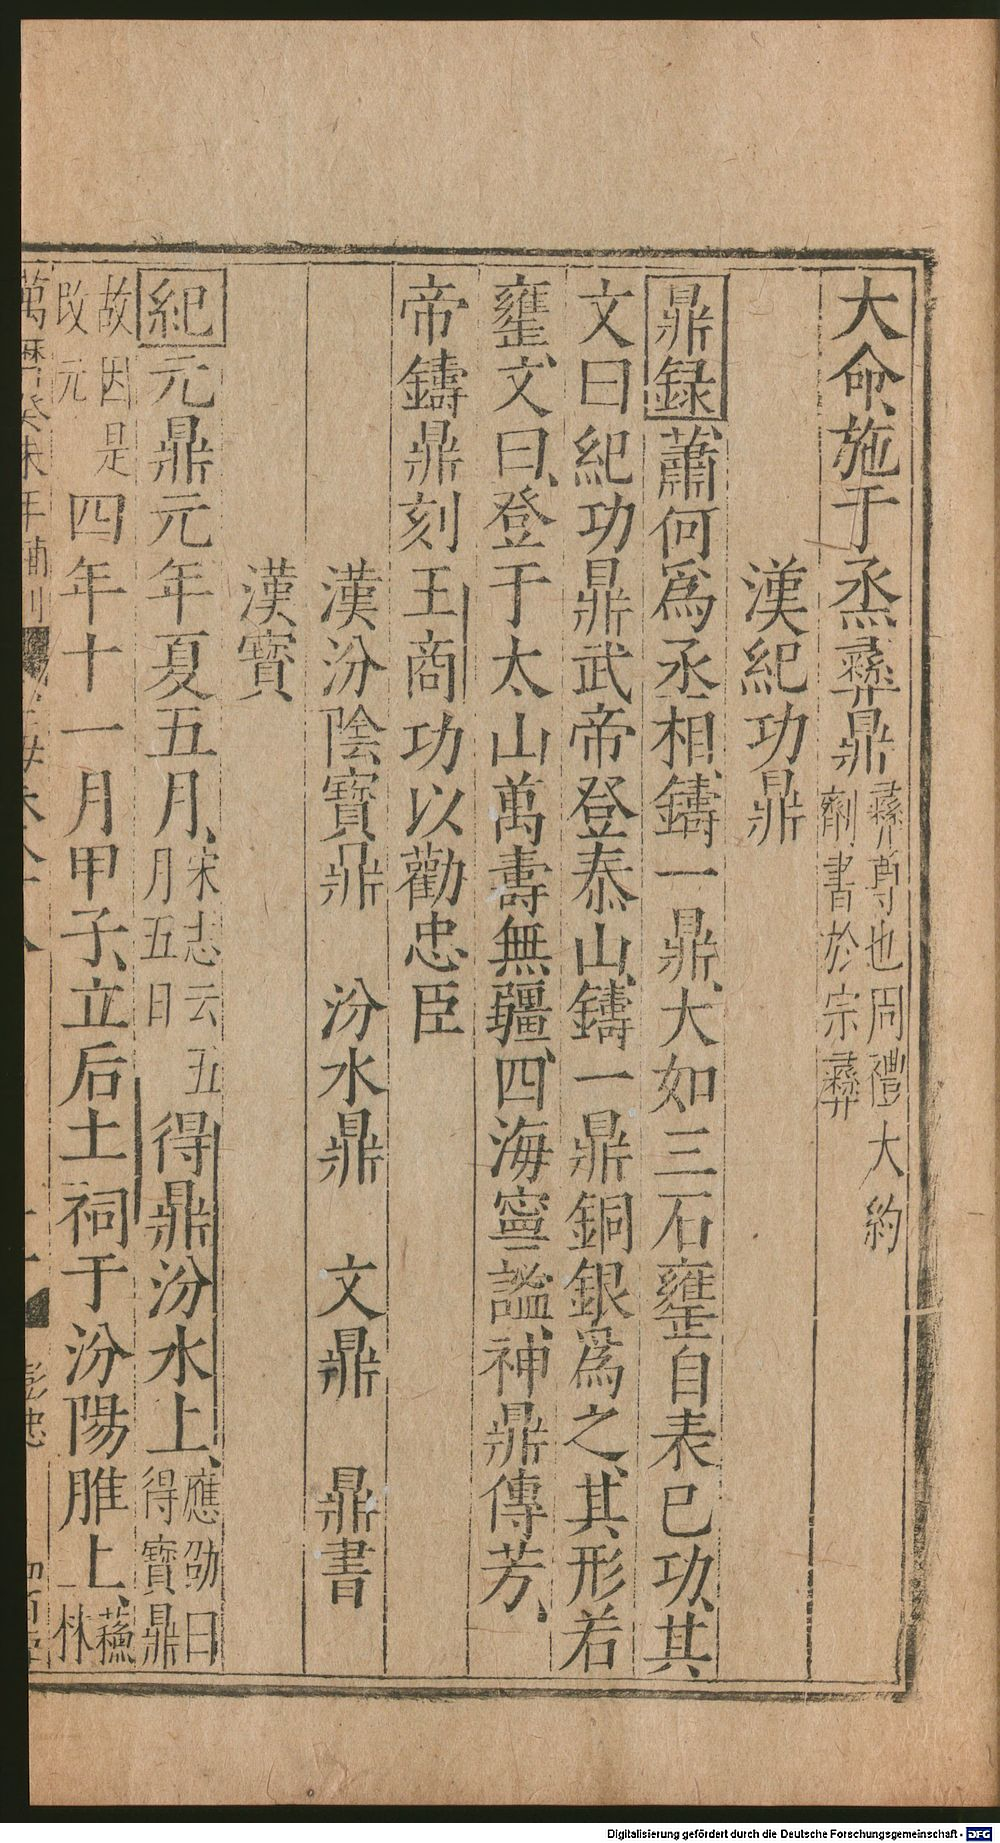 大命施于烝彝鼎彝尊也周禮大約劑書於宗彝
漢紀功鼎
鼎録蕭何爲丞相鑄一鼎大如三石甕自表己功其
文曰紀功鼎武帝登泰山鑄一鼎銅銀爲之其形若
甕文曰登于太山萬壽無疆四海寧謐神鼎傳芳
帝鑄鼎刻王商功以勸忠臣
漢汾陰寶鼎 汾水鼎 文鼎 鼎書
漢寶
紀元鼎元年夏五月宋志云五月五日得鼎汾水上應劭曰得寶鼎
故因是改元四年十一月甲子立后土祠于汾陽脽上蘇林
萬曆癸未年補刊
Digitalisierung gefördert durch die Deutsche Forschungsgemeinschaft - DFG